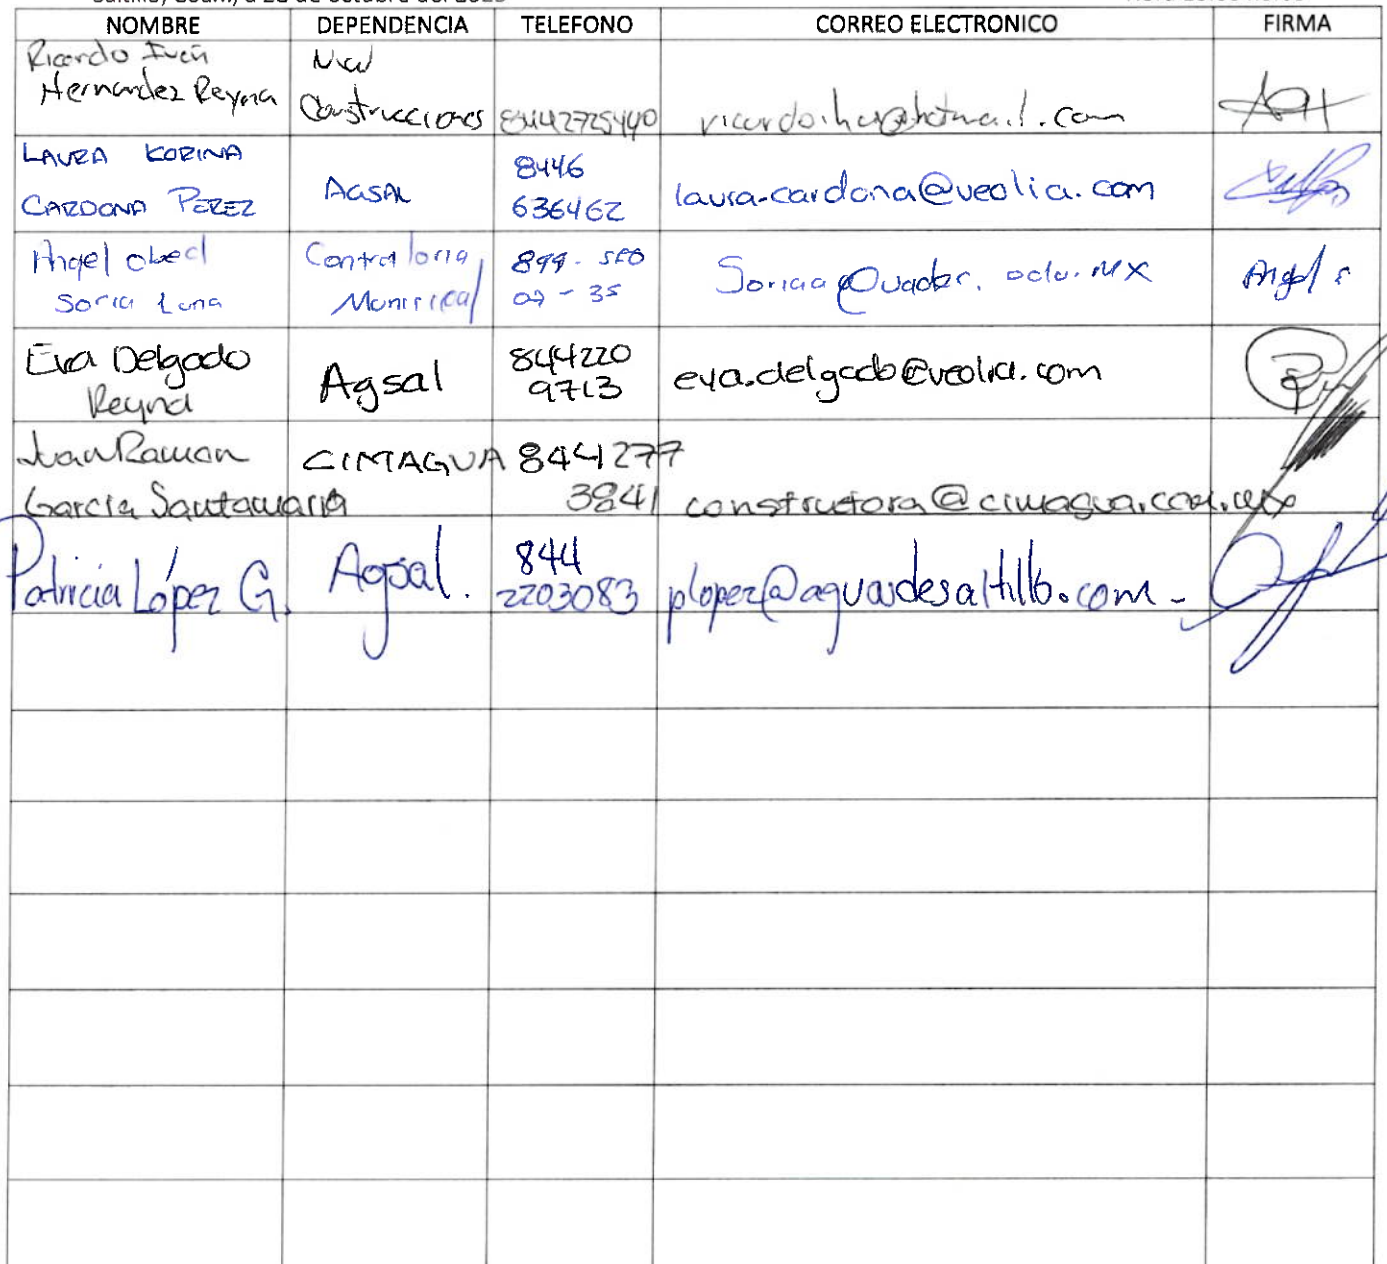 NOMBRE DEPENDENCIA TELEFONO CORREO ELECTRONICO FIRMA
Ricardo Iván
Hernandez Reyna
Construcciones 8442725440
LAURA KORINA
CARDONA PEREZ
AGSAL
8446
636462
laura.cardona@veolia.com
Angel obed
Soria Luna
Contraloria
Municipal
899-
07-35
Angel s
Eva Delgado
Reyna
Agsal
844220
9713
eva.delgado@veolia.com
Juan Ramon
Garcia Santamaria
CIMAGUA
844277
3841
constructora@cimagua.com.mx
Patricia López G.
Agsal.
844
2203083
plopez@aguasdesaltillo.com-